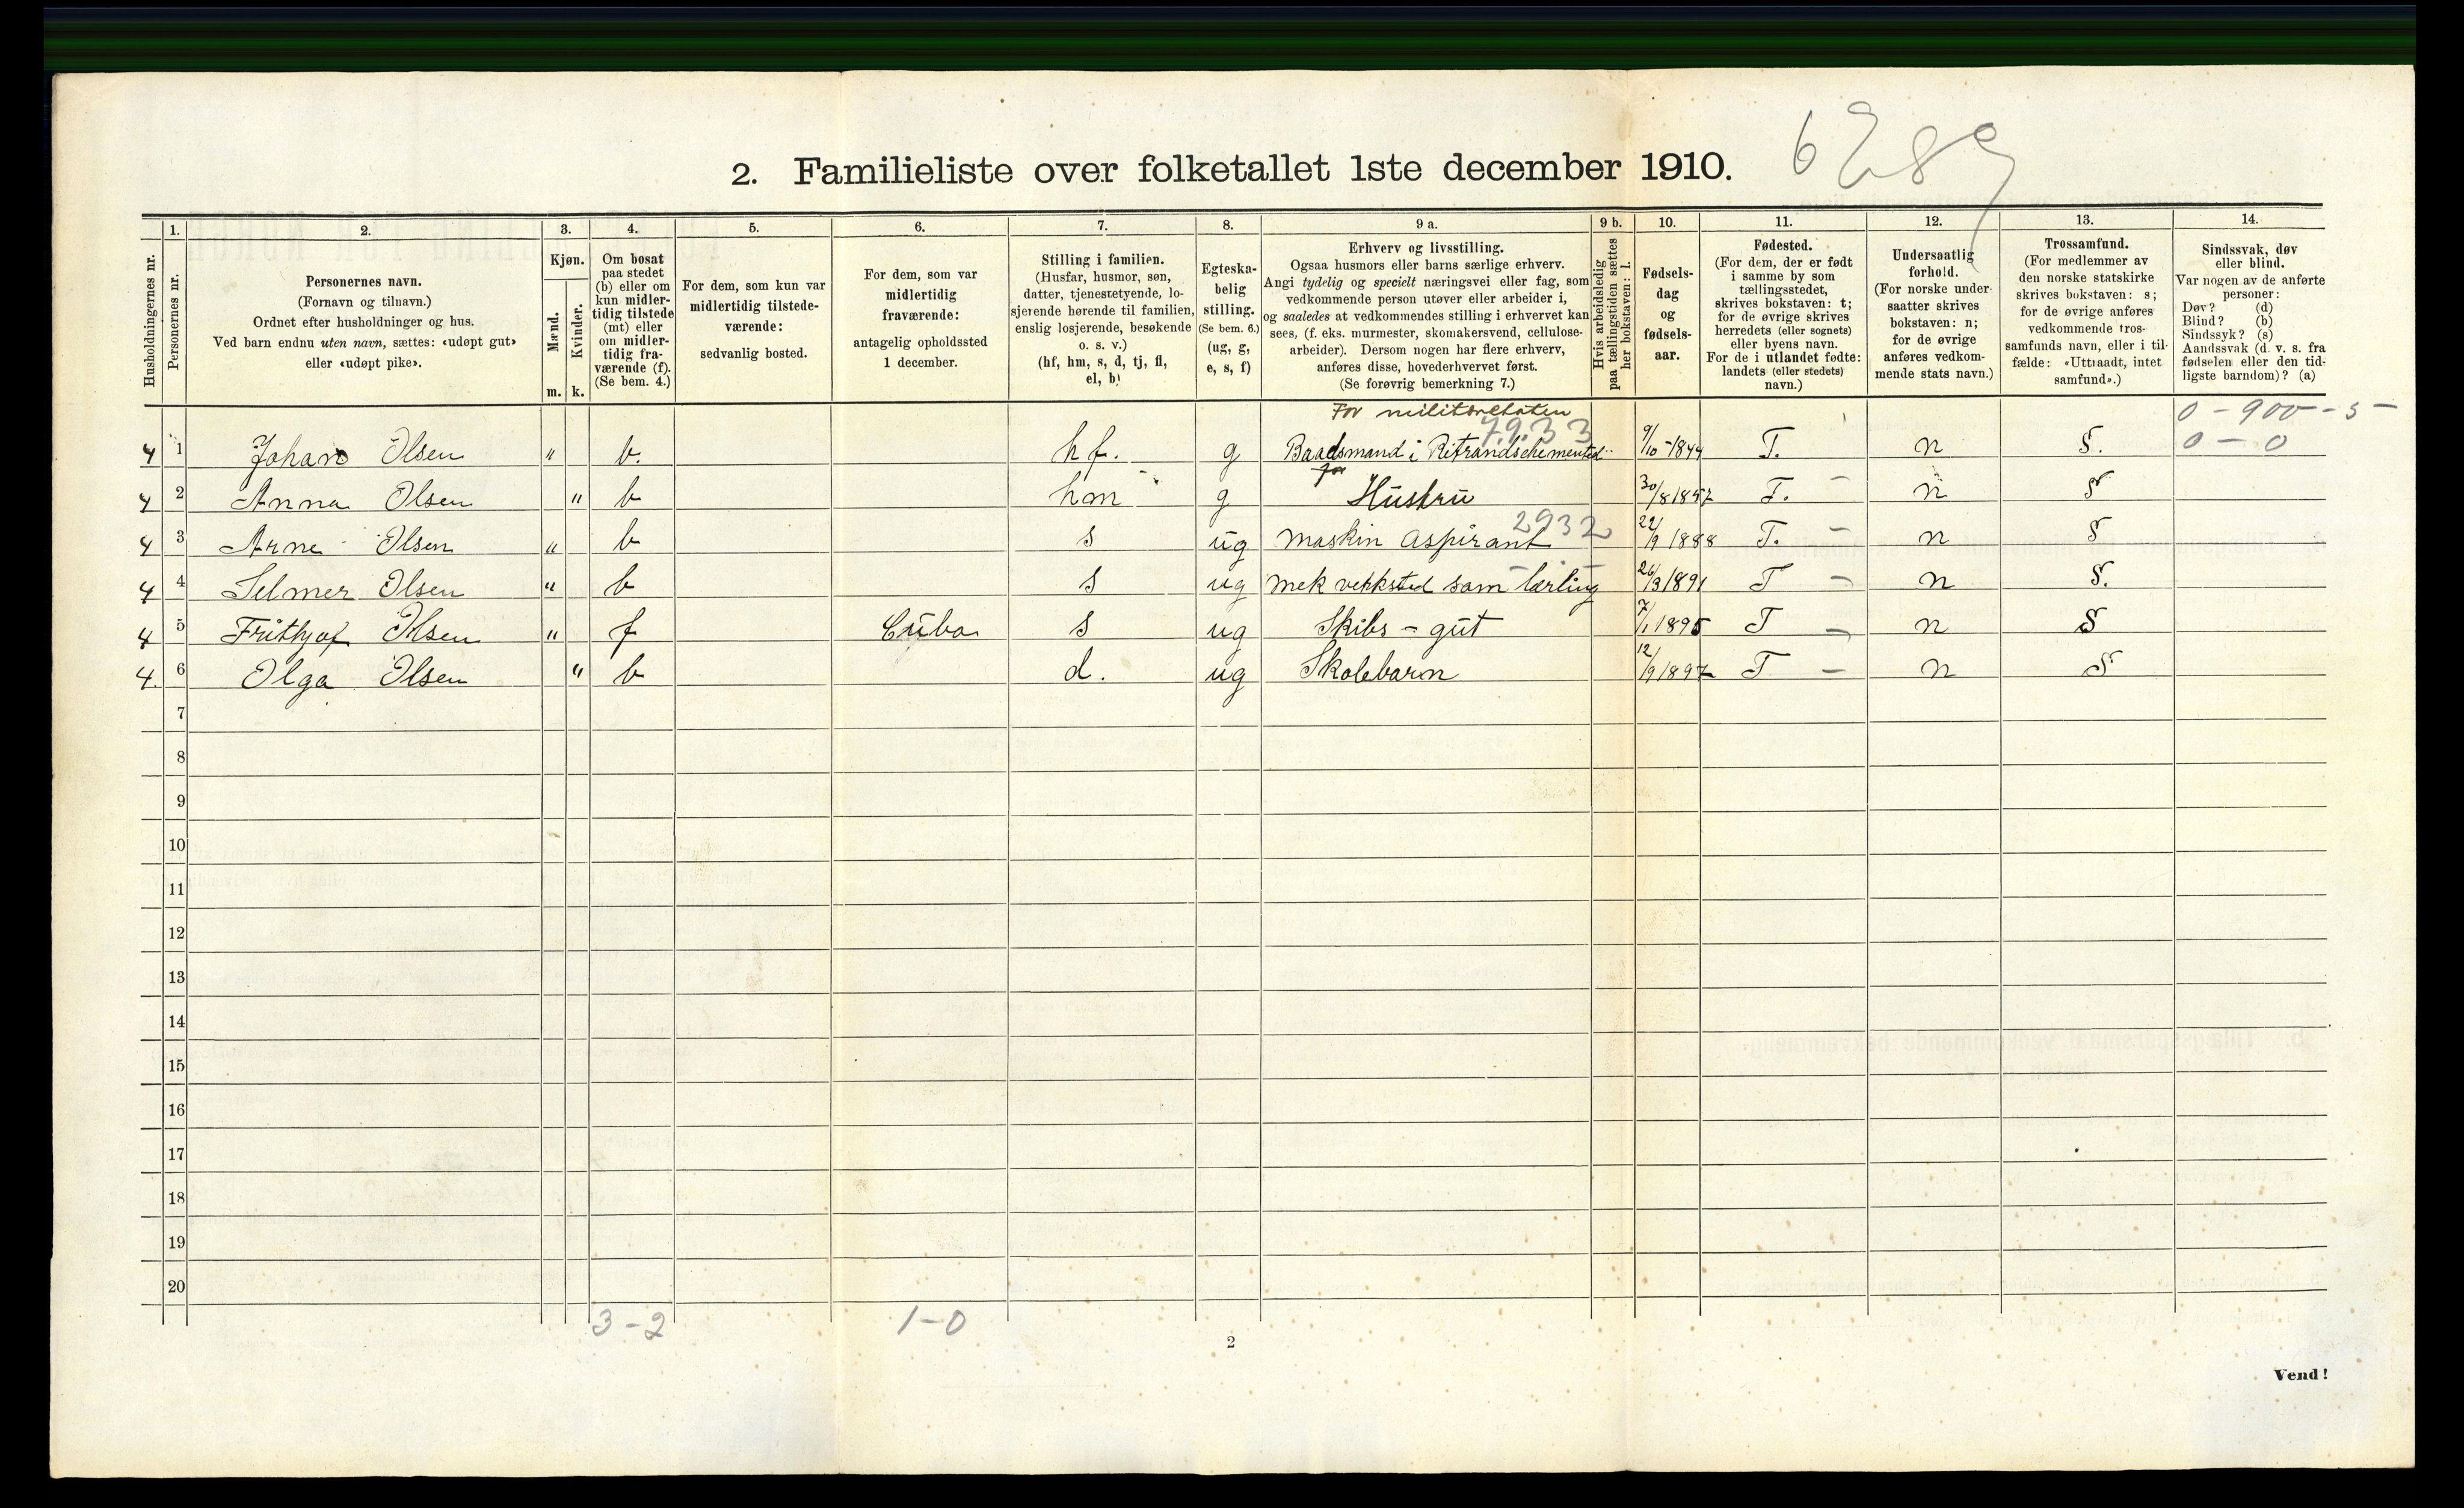 2. Familieliste over folketallet 1ste december 1910.
Husholdningernes nr.
1.
Personernes nr.
2.
Personernes navn.
(Fornavn og tilnavn.)
Ordnet efter husholdninger og hus.
Ved barn endnu uten navn, sættes: «udøpt gut»
eller «udøpt pike».
3.
Kjøn.
Mænd.
Kvinder.
m. k.
4.
Om bosat
paa stedet
(b) eller om
kun midler-
tidig tilstede
(mt) eller
om midler-
tidig fra-
værende (f).
(Se bem. 4.)
5.
For dem, som kun var
midlertidig tilstede-
værende:
sedvanlig bosted.
6.
For dem, som var
midlertidig
fraværende:
antagelig opholdssted
1 december.
7.
Stilling i familien.
(Husfar, husmor, søn,
datter, tjenestetyende, lo-
sjerende hørende til familien,
enslig losjerende, besøkende
o. s. v.)
(hf, hm, s, d, tj, fl,
el, b)
8.
Egteska-
belig
stilling.
(Se bem. 6.)
(ug, g,
e, s, f)
9 a.
Erhverv og livsstilling.
Ogsaa husmors eller barns særlige erhverv.
Angi tydelig og specielt næringsvei eller fag, som
vedkommende person utøver eller arbeider i,
og saaledes at vedkommendes stilling i erhvervet kan
sees, (f. eks. murmester, skomakersvend, cellulose-
arbeider). Dersom nogen har flere erhverv,
anføres disse, hovederhvervet først.
(Se forøvrig bemerkning 7.)
9 b.
Hvis arbeidsledig
paa tællingstiden sættes
her bokstaven: l.
10.
Fødsels-
dag
og
fødsels-
aar.
11.
Fødested.
(For dem, der er født
i samme by som
tællingsstedet,
skrives bokstaven: t;
for de øvrige skrives
herredets (eller sognets)
eller byens navn.
For de i utlandet fødte:
landets (eller stedets)
navn.)
12.
Undersaatlig
forhold.
(For norske under-
saatter skrives
bokstaven: n;
for de øvrige
anføres vedkom-
mende stats navn.)
13.
Trossamfund.
(For medlemmer av
den norske statskirke
skrives bokstaven: s;
for de øvrige anføres
vedkommende tros-
samfunds navn, eller i til-
fælde: «Uttraadt, intet
samfund».)
14.
Sindssvak, døv
eller blind.
Var nogen av de anførte
personer:
Døv? (d)
Blind? (b)
Sindssyk? (s)
Aandssvak (d. v. s. fra
fødselen eller den tid-
ligste barndom)? (a)
For militæretaten
0-900-5-
4 1 Johan Olsen " b. hf. g Baadsmand i 9/10-1844 T. n S. 0-0
4 2 Anna Olsen " b hm g Hustru 30/8 1852 T. - n S
2932
4 3 Arne Olsen " b s ug Maskin Aspirant 22/9 1888 T. - n S
4 4 Selmer Olsen " b s ug Mek verksted som lærling 26/3 1891 T - n S.
4 5 Frithjof Olsen " f Cuba s ug Skibs-gut 7/1 1895 T - n S
4. 6 Olga Olsen " b d. ug Skolebarn 12/9 1897 T - n S
7
8
9
10
11
12
13
14
15
16
17
18
19
20
3-2 1-0
2
Vend!